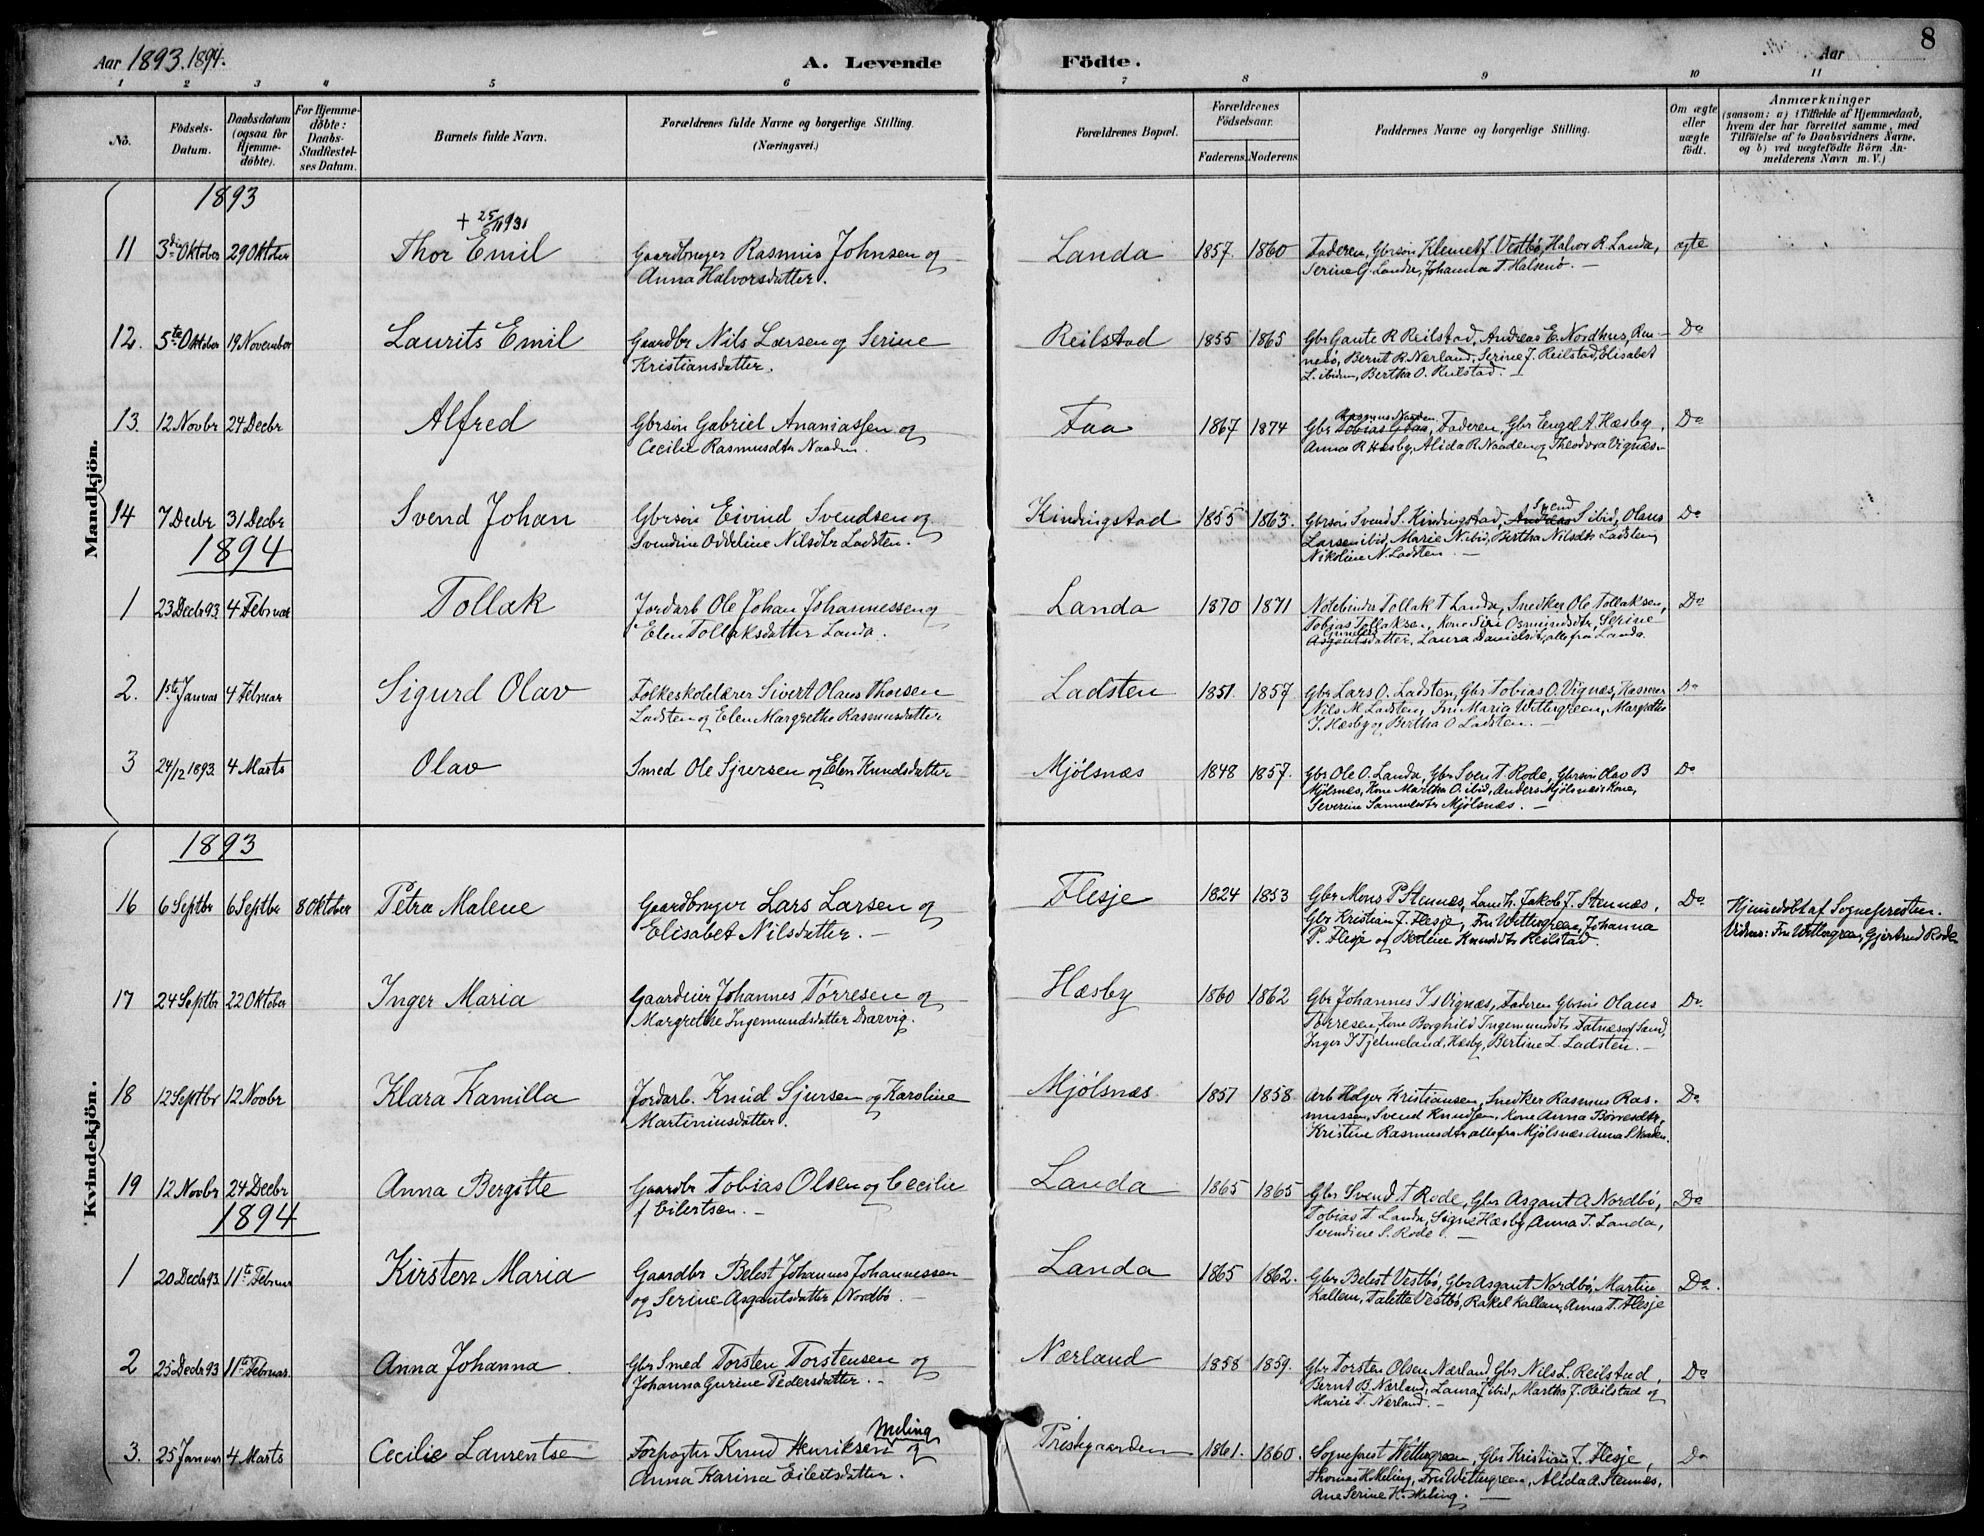 Aar 1893. 1894.
A. Levende
Födte.
Aar
8
1 2 3 4 5 6 7 8 9 10 11
No.
Födsels-Datum.
Daabsdatum (ogsaa for Hjemme-døbte).
For Hjemme-döbte: Daabs-Stadfæstel-ses Datum.
Barnets fulde Navn.
Forældrenes fulde Navne og borgerlige Stilling. (Næringsvei.)
Forældrenes Bopæl.
Forældrenes Födselsaar.
Faderens. Moderens.
Faddernes Navne og borgerlige Stilling.
Om ægte eller uægte födt.
Anmærkninger
(saasom: a) i Tilfælde af Hjemmedaab,
hvem der har forrettet samme, med
Tilföielse af to Daabsvidners Navne.
og b) ved uægtefödte Börn An-
melderens Navn m. V.)
Mandkjön.
1893
+ 25/11 1931
11 3die Oktober 29 Oktober Thor Emil Gaardbruger Rasmus Johnsen og Landa 1857. 1860 Faderen, Gbrsön Klemet J. Vestbø, Halvor R. Landa, ægte
Anna Halvorsdatter. Serine G. Landa, Johanna T. Halsenø. —
12. 5te Oktober 19 November Laurits Emil Gaardbr Nils Larsen og Serine Reilstad 1855 1865 Gbr Gaute R Reilstad, Andreas E. Nordhus, Ren- Do
Kristiansdatter. nesø, Bernt R. Nærland, Serine J. Reilstad, Elisabet
L. ibidem, Bertha O. Reilstad. —
13. 12 Novbr 24 Decbr Alfred Gbrsön Gabriel Ananiassen og Faa 1867 1874 Gbr Rasmus Naaden, Faderen, Gbr Engel A. Hæsby, Do
Cecilie Rasmusdtr Naaden. Anna R Hæsby, Alida R. Naaden og Theodora Vignæs. —
14 7 Decbr 31 Decbr Svend Johan Gbrsön Eivind Svendsen og Kindingstad 1855 1863. Gbrsön Svend S. Kindingstad, Svend S ibid, Olaus Do
Svendine Oddeline Nilsdtr Ladsten. Larsen ibid, Marie N. ibid, Bertha Nilsdtr Ladsten,
Nikoline N. Ladsten. —
1894
1 23 Decbr 93 4 Februar Tollak Jordarb Ole Johan Johannessen og Landa 1870 1871 Notebinder Tollak T Landa, Snedker Ole Tollaksen, Do
Elen Tollaksdatter Landa. Tobias Tollaksen, Kone Siri Osmundsdtr, Serine
Asgautsdatter, Laura Danielsdtr, alle fra Landa.
2. 1ste Januar 4 Februar Sigurd Olav Folkeskolelærer Sivert Olaus Thorsen Ladsten 1851. 1857 Gbr Lars O. Ladsten, Gbr Tobias O. Vignæs, Kasserer Do
Ladsten og Elen Margrethe Rasmusdatter Nils M Ladsten, Fru Maria Wettergreen, Margrethe
T. Hæsby og Bertha O Ladsten. —
3 24/12 1893. 4 Marts Olav Smed Ole Sjursen og Elen Knudsdatter Mjølsnæs 1848 1857. Gbr Ole O. Landa, Gbr Sven T. Rode, Gbrsön Olav B Do
Mjølsnæs, Kone Martha O. ibid, Anders Mjølsnæs's Kone,
Severine Samuelsdtr Mjølsnæs. —
Kvindekjön.
1893
16 6 Septbr 6 Septbr 8 Oktober Petra Malene Gaardbruger Lars Larsen og Flesje 1824 1853 Gbr Mons P Stennæs, Landh. Jakob J. Stennæs, Do Hjemmedöbt af Sognepresten.
Elisabet Nilsdatter. — Gbr Kristian J. Flesje, Fru Wettergreen, Johanna Vidner: Fru Wettergreen, Gjertrud Rode
P. Flesje og Bertine Knudsdtr Reilstad.
17 24 Septbr 22 Oktober Inger Maria Gaardeier Johannes Tørresen og Hæsby 1860 1862 Gbr Johannes Is Vignæs, Faderen Gbrsön Olaus Do.
Margrethe Ingemundsdatter Darvig. Tørresen, Kone Borghild Ingemundsdtr Fatnæs af Sand,
Inger T Tjelmeland, Hæsby, Bertine L. Ladsten. —
18 12 Septbr 12 Novbr Klara Kamilla Jordarb. Knud Sjursen og Karoline Mjølsnæs 1857 1858 Arb Holger Kristiansen, Snedker Rasmus Ras- Do
Martiniusdatter. mussen, Svend Knudsen, Kone Anna Børresdtr,
Kristine Rasmusdtr alle fra Mjølsnæs Anna S Naaden.
19 12 Novbr 24 Decbr Anna Bergitte Gaardbr Tobias Olsen og Cecilie Landa 1865 1865 Gbr Svend T Rode, Gbr Asgaut A Nordbø, Do
f Eilertsen. — Tobias T. Landa, Signe Hæsby, Anna T. Landa,
Svendine S. Rode. —
1894
1 20 Decbr 93. 11te Februar Kirsten Maria Gaardbr Belest Johannes Johannessen Landa 1865 1862. Gbr Belest Vestbø, Gbr Asgaut Nordbø, Martin Do.
og Serine Asgautsdatter Nordbø. — Kallem, Talette Vestbø, Rakel Kallem, Anna T. Flesje
2 25 Decbr 93 11te Februar. Anna Johanna Gbr Smed Torsten Torstensen og Nærland 1858 1859. Gbr Torsten Olsen Nærland, Gbr Nils L. Reilstad, Do
Johanna Gurine Pedersdatter. — Bernt B. Nærland, Laura J ibid, Martha J. Reilstad og
Marie T. Nærland. —
3. 25 Januar 4 Marts Cecilie Laurentse Forpagter Knud Henriksen Meling og Prestegaarden 1861. 1860. Sogneprest Wettergreen, Gbr Kristian J. Flesje, Do
Anna Karina Eilertsdatter. Thomas H. Meling, Fru Wettergreen, Alida A. Stennæs,
Ane Serine H. Meling. —